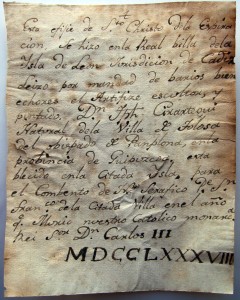 Esta efije de Sto Christo dela Expira
cion, se hizo enla Real billa dela
Isla de Leon Jurisdicion de Cadiz
hizo por mandad de barios bien
echores el Artifize escultor y
Dn Jph
Natural dela Villa de Tolosa
del obispado de Pamplona, enla
probincia de Guipuzcoa, esta
blecido enla Citada Isla, para
el Combento de Ntro Serafico Pe Sn
Franco dela Citada Villa en el año a
q. Murio nuestro Catolico monarca
Rei Sor Dn Carlos III
MDCCLXXXVIII